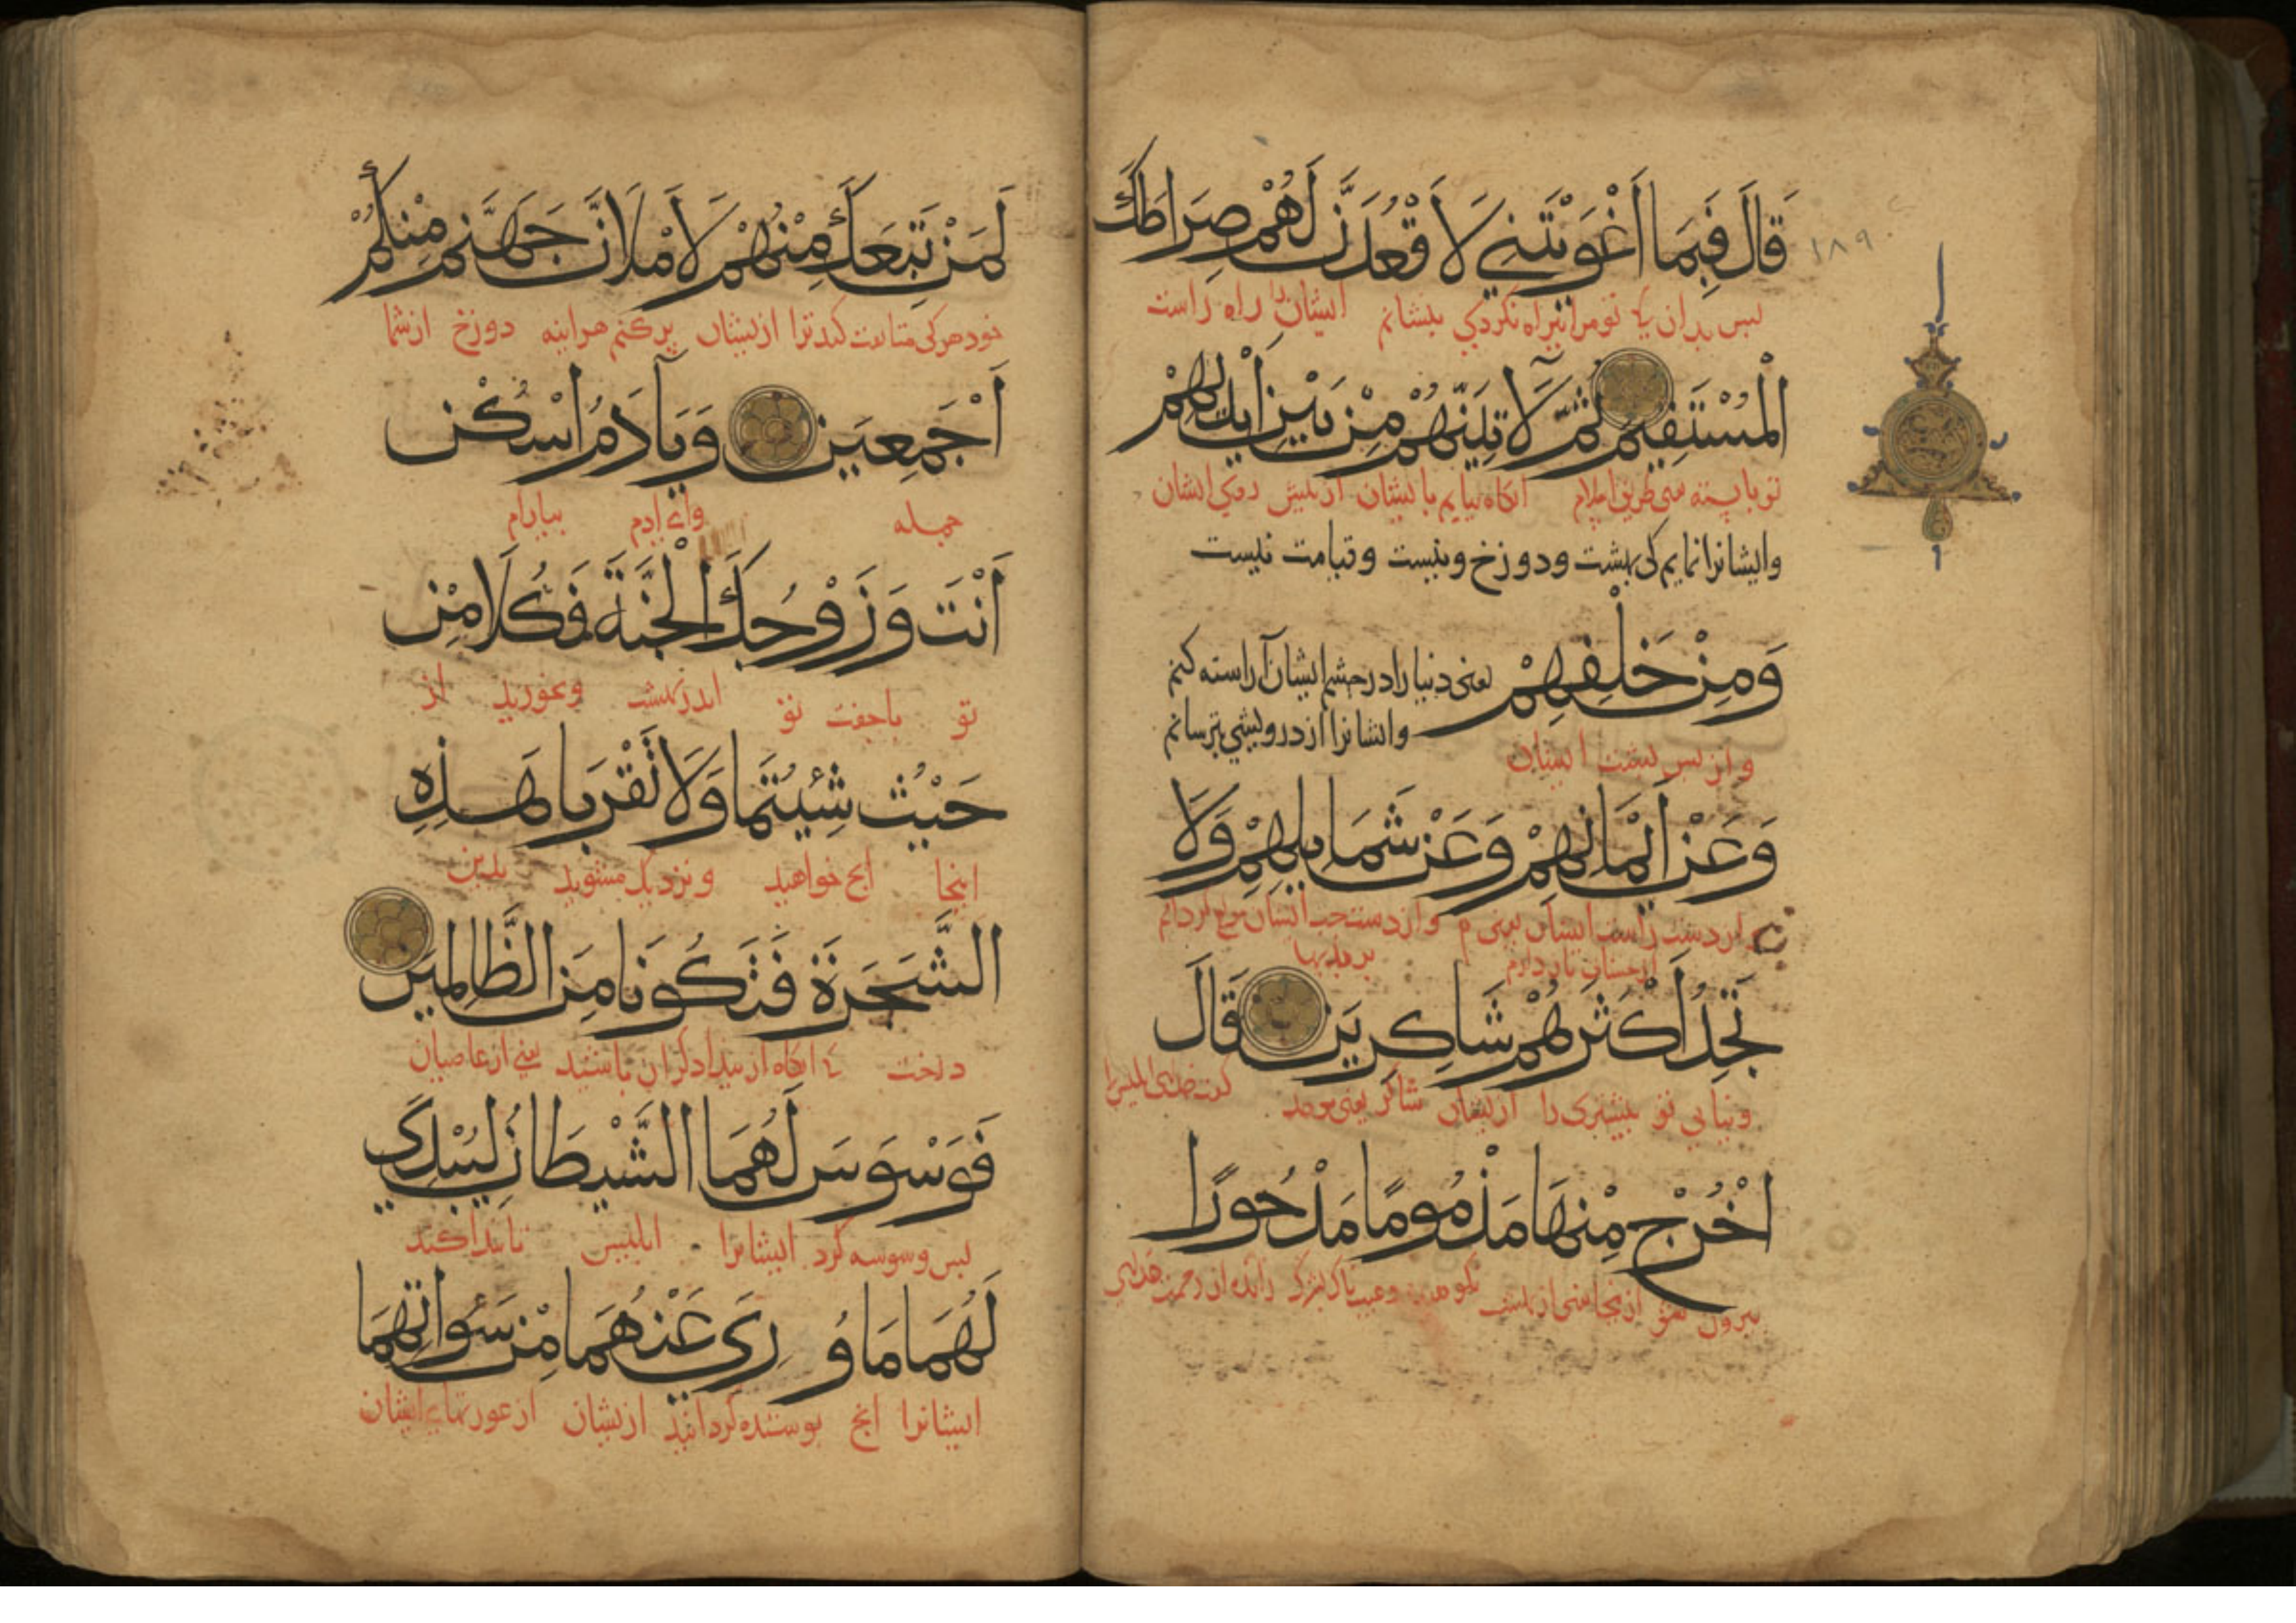 قَالَ فَبِمَا أَغْوَيْتَنِي لَأَقْعُدَنَّ لَهُمْ صِرَاطَكَ
١٨٩
پس بدان که تو مرا بیراه کردی بنشانم ایشان را راه راست
الْمُسْتَقِيمَ ثُمَّ لَآتِيَنَّهُمْ مِنْ بَيْنِ أَيْدِيهِمْ
انکاه بیایم بایشان از پیش روی ایشان
وایشانرا نمایم کی بهشت ودوزخ ونیست وقیامت نیست
وَمِنْ خَلْفِهِمْ یعنی دنیا را در چشم ایشان آراسته کنم
وایشانرا از درویشی بترسانم
واز پس پشت ایشان
وَعَنْ أَيْمَانِهِمْ وَعَنْ شَمَايِلِهِمْ وَلَا
از دست راست ایشان یعنی واز دست چپ ایشان
از حسنات باز دارم بر بدیها
تَجِدُ أَكْثَرَهُمْ شَاكِرِينَ قَالَ
ونیابی تو بیشتری را ازیشان شاکر یعنی موحد گفت خدای ابلیس را
اخْرُجْ مِنْهَا مَذْمُومًا مَدْحُورًا
بیرون شو ازینجا یعنی از بهشت رانده از رحمت خدای
لَمَنْ تَبِعَكَ مِنْهُمْ لَأَمْلَأَنَّ جَهَنَّمَ مِنْكُمْ
خود هرکی متابعت کند ترا ازیشان پر کنم هراینه دوزخ ازشما
أَجْمَعِينَ وَيَا آدَمُ اسْكُنْ
جمله وای آدم بیارام
أَنْتَ وَزَوْجُكَ الْجَنَّةَ فَكُلَا مِنْ
تو با جفت تو اندر بهشت وبخورید از
حَيْثُ شِئْتُمَا وَلَا تَقْرَبَا هَذِهِ
اینجا انچ خواهید ونزدیک مشوید بدین
الشَّجَرَةَ فَتَكُونَا مِنَ الظَّالِمِينَ
درخت که انکاه از بیدادکران باشید یعنی از عاصیان
فَوَسْوَسَ لَهُمَا الشَّيْطَانُ لِيُبْدِيَ
پس وسوسه کرد ایشانرا ابلیس تا پیدا کند
لَهُمَا مَا وُرِيَ عَنْهُمَا مِنْ سَوْآتِهِمَا
ایشانرا انچ پوشیده کردانید ازیشان از عورتهای ایشان